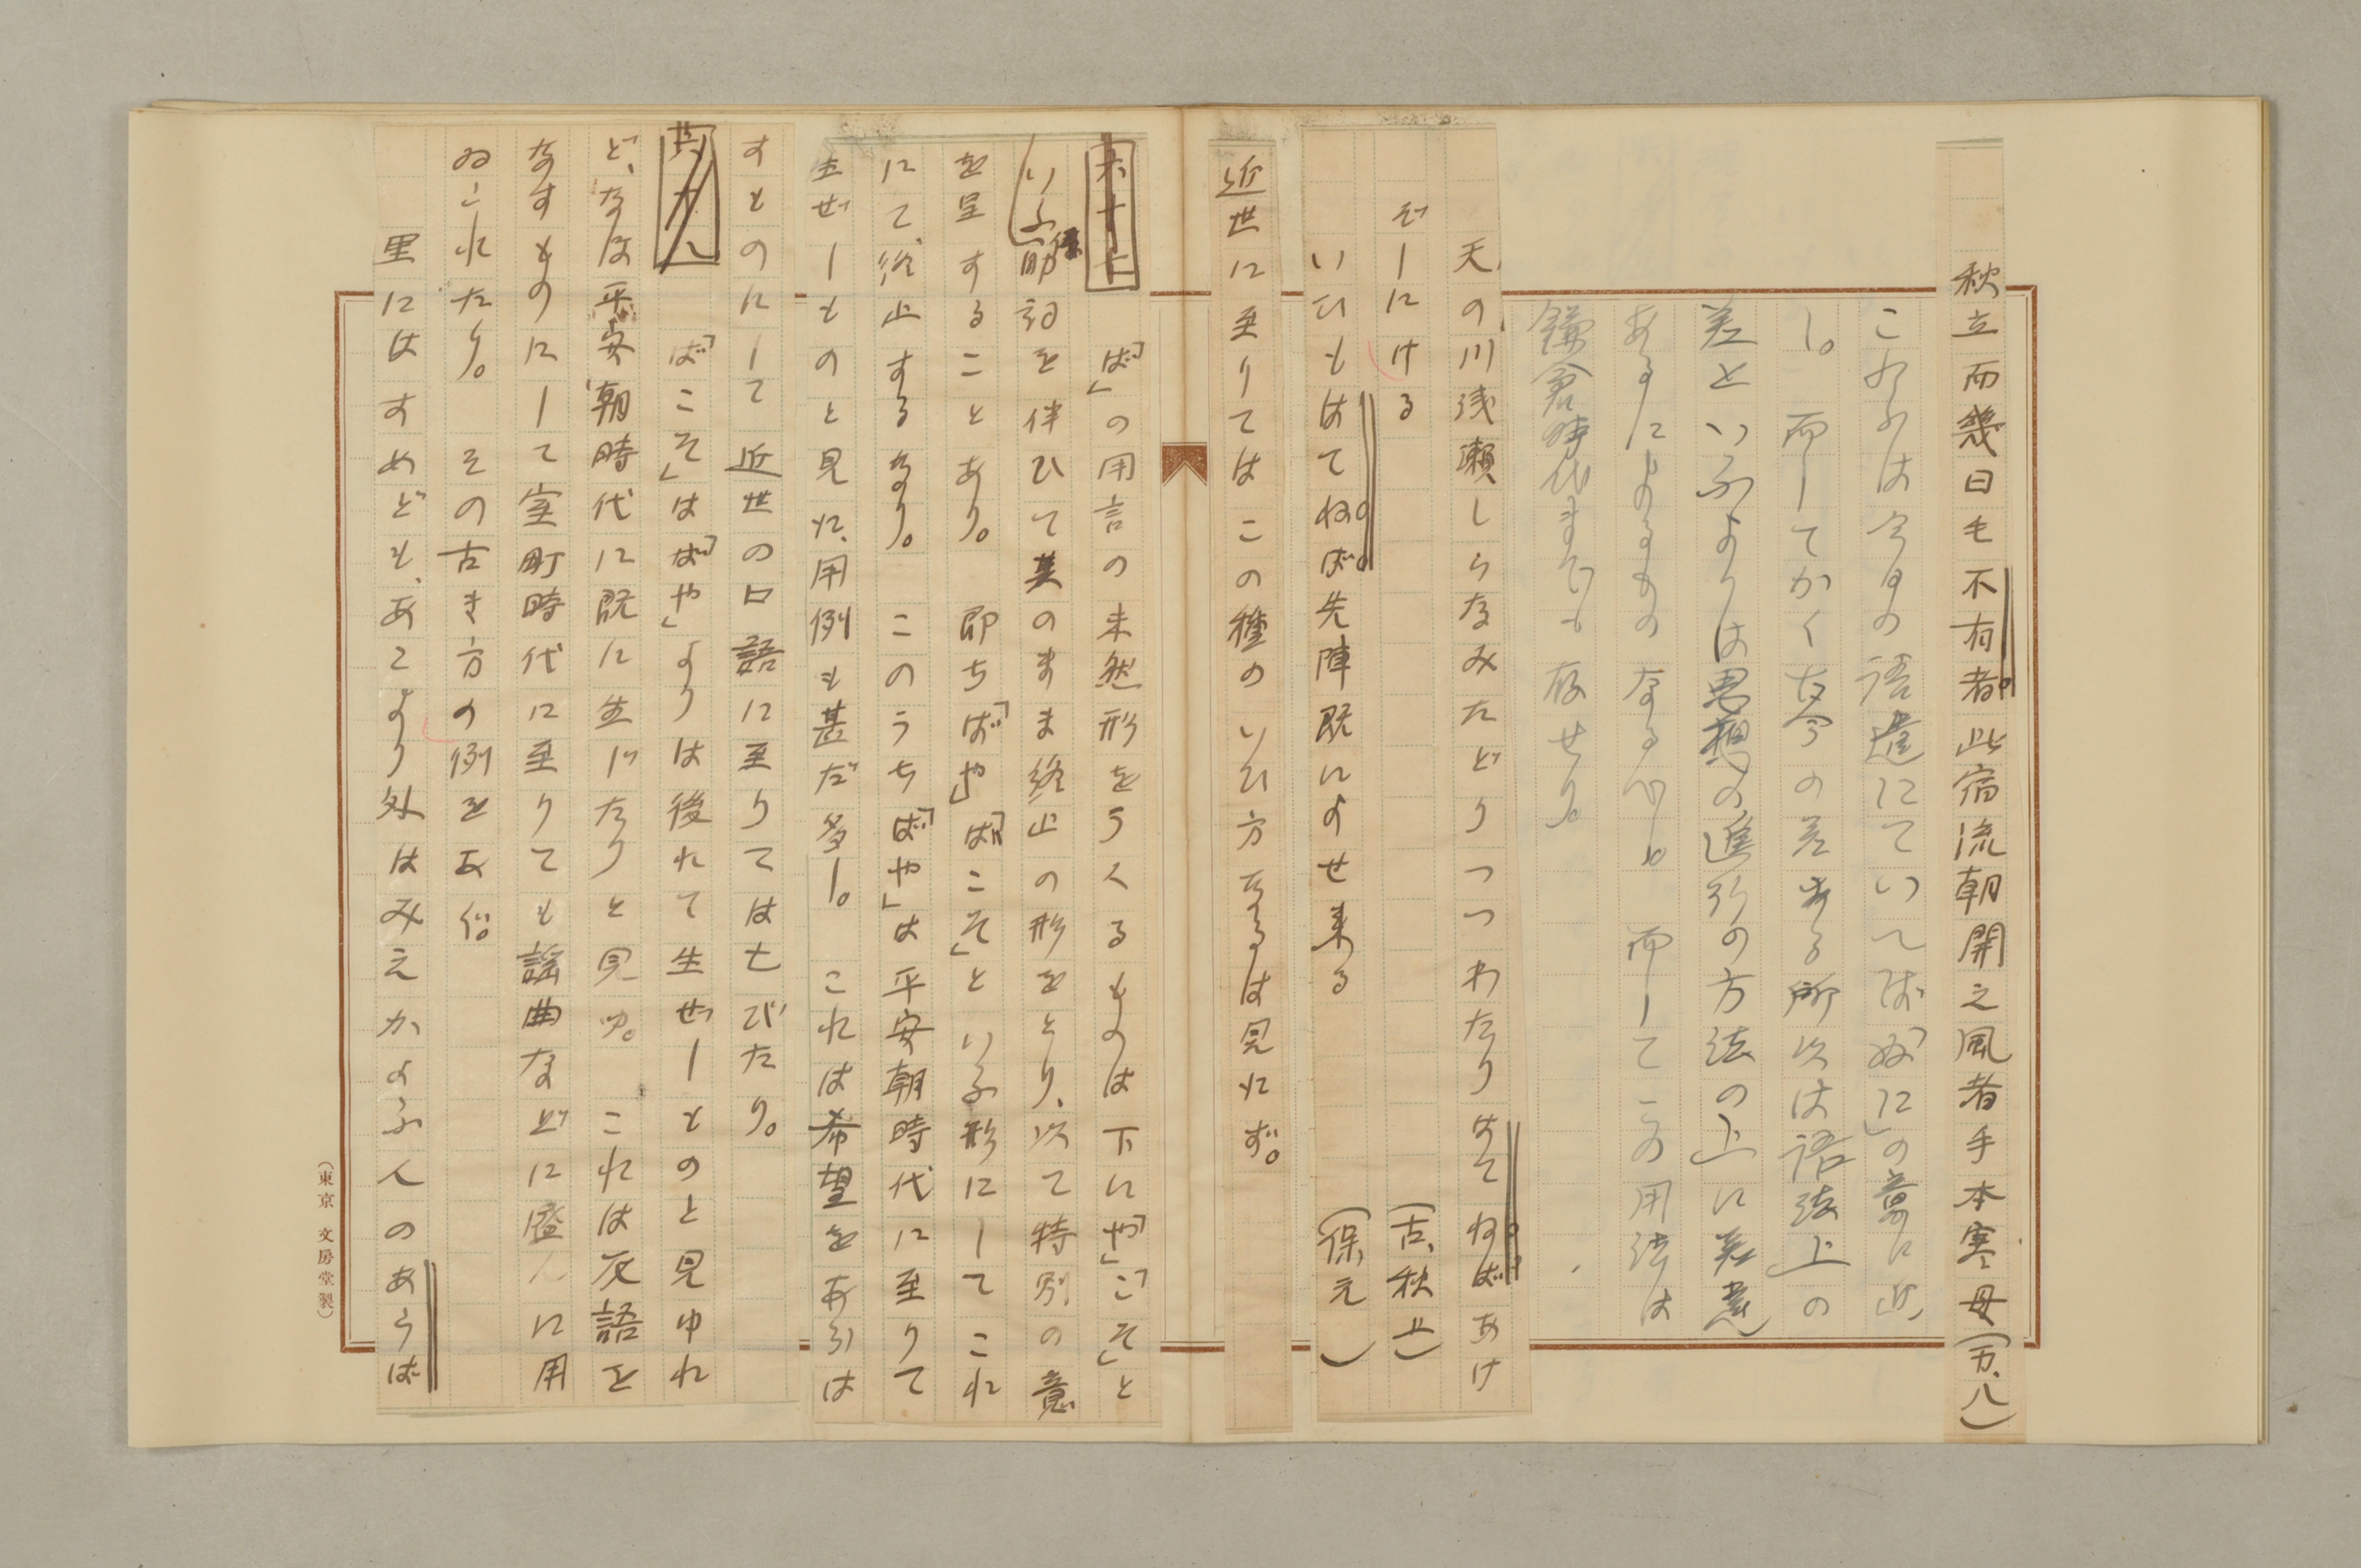 秋立而幾日毛不有者此宿流朝開之風者手本寒母(万、八)
これらは今日の語遣にていへば「ぬに」の意に近
し。而してかく古今の差ある所以は語法上の
差といふよりは思想の進行の方法の上に差異
あるによるものなるべし。而してこの用法は
鎌倉時代までも存せり。
天の川浅瀬しらなみたどりつつわたりはてねばあけ
ぞしにける(古、秋上)
いひもはてねば先陣既によせ来る(保、元)
近世に至りてはこの種のいひ方なるは見えず。
六十七「ば」の用言の未然形をうくるものは下に「や」「こそ」と
いふ係助詞を伴ひて其のまま終止の形をとり、以て特別の意
を呈することあり。即ち「ばや」「ばこそ」といふ形にしてこれ
にて終止するなり。このうち「ばや」は平安朝時代に至りて
生ぜしものと見え、用例も甚だ多し。これは希望をあらは
すものにして近世の口語に至りては亡びたり。
六十八「ばこそ」は「ばや」よりは後れて生ぜしものと見ゆれ
ど、なほ平安朝時代に既に生じたりと見ゆ。これは反語を
なすものにして室町時代に至りても謡曲などに盛んに用
ゐられたり。その古き方の例をあぐ。
里にはすめども、あこより外はみえかよふ人のあらば
(東京 文房堂製)